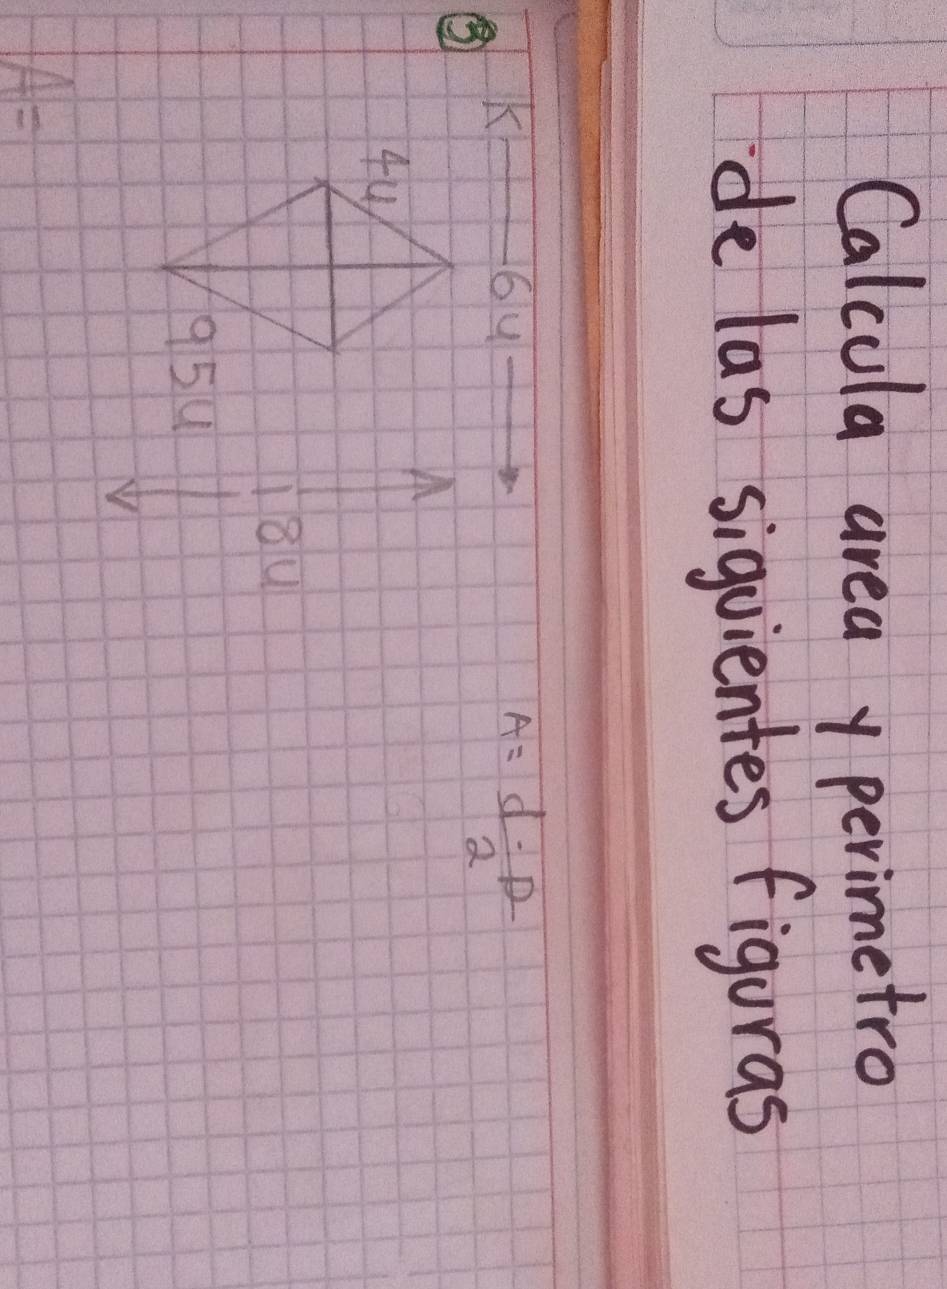 Calcula area y perimetro
de las siguientes figuras
3
6u
A = d·D
2
4u
8u
95u
A =